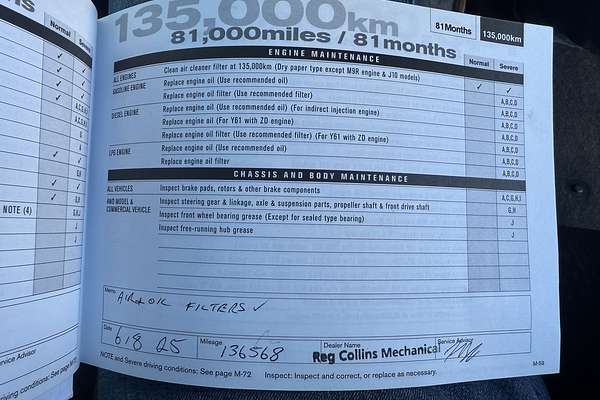 135,000km
81Months
135,000km
81,000miles / 81months
ENGINE MAINTENANCE
Normal
Severe
ALL ENGINES
Clean air cleaner filter at 135,000km (Dry paper type except M9R engine & J10 models)
✓
✓
GASOLINE ENGINE
Replace engine oil (Use recommended oil)
A,B,C,D
Replace engine oil filter (Use recommended filter)
A,B,C,D
DIESEL ENGINE
Replace engine oil (Use recommended oil) (For indirect injection engine)
A,B,C,D
Replace engine oil (For Y61 with ZD engine)
A,B,C,D
Replace engine oil filter (Use recommended filter) (For Y61 with ZD engine)
A,B,C,D
LPG ENGINE
Replace engine oil (Use recommended oil)
A,B,C,D
Replace engine oil filter
A,B,C,D
CHASSIS AND BODY MAINTENANCE
ALL VEHICLES
Inspect brake pads, rotors & other brake components
A,C,G,H,I
4WD MODEL & COMMERCIAL VEHICLE
Inspect steering gear & linkage, axle & suspension parts, propeller shaft & front drive shaft
G,H
Inspect front wheel bearing grease (Except for sealed type bearing)
J
Inspect free-running hub grease
J
Memo
AIR & OIL FILTERS ✓
Date
6/8 25
Mileage
136568
Dealer Name
Reg Collins Mechanical
Service Advisor
NOTE and Severe driving conditions: See page M-72
Inspect: Inspect and correct, or replace as necessary.
M-59
Normal
Severe
NOTE (4)
Service Advisor
driving conditions: See page M-72